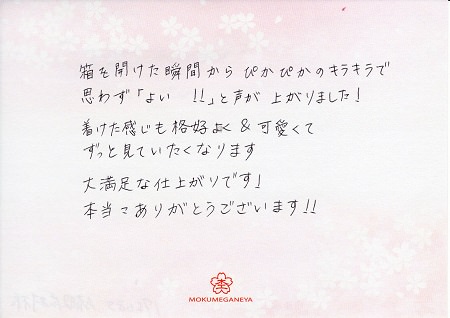 箱を開けた瞬間から ぴかぴかのキラキラで
思わず「よい !!」と声が 上がりました!
着けた感じも格好よく & 可愛くて
ずっと見ていたくなります
大満足な仕上がりです!
本当にありがとうございます!!
MOKUMEGANEYA